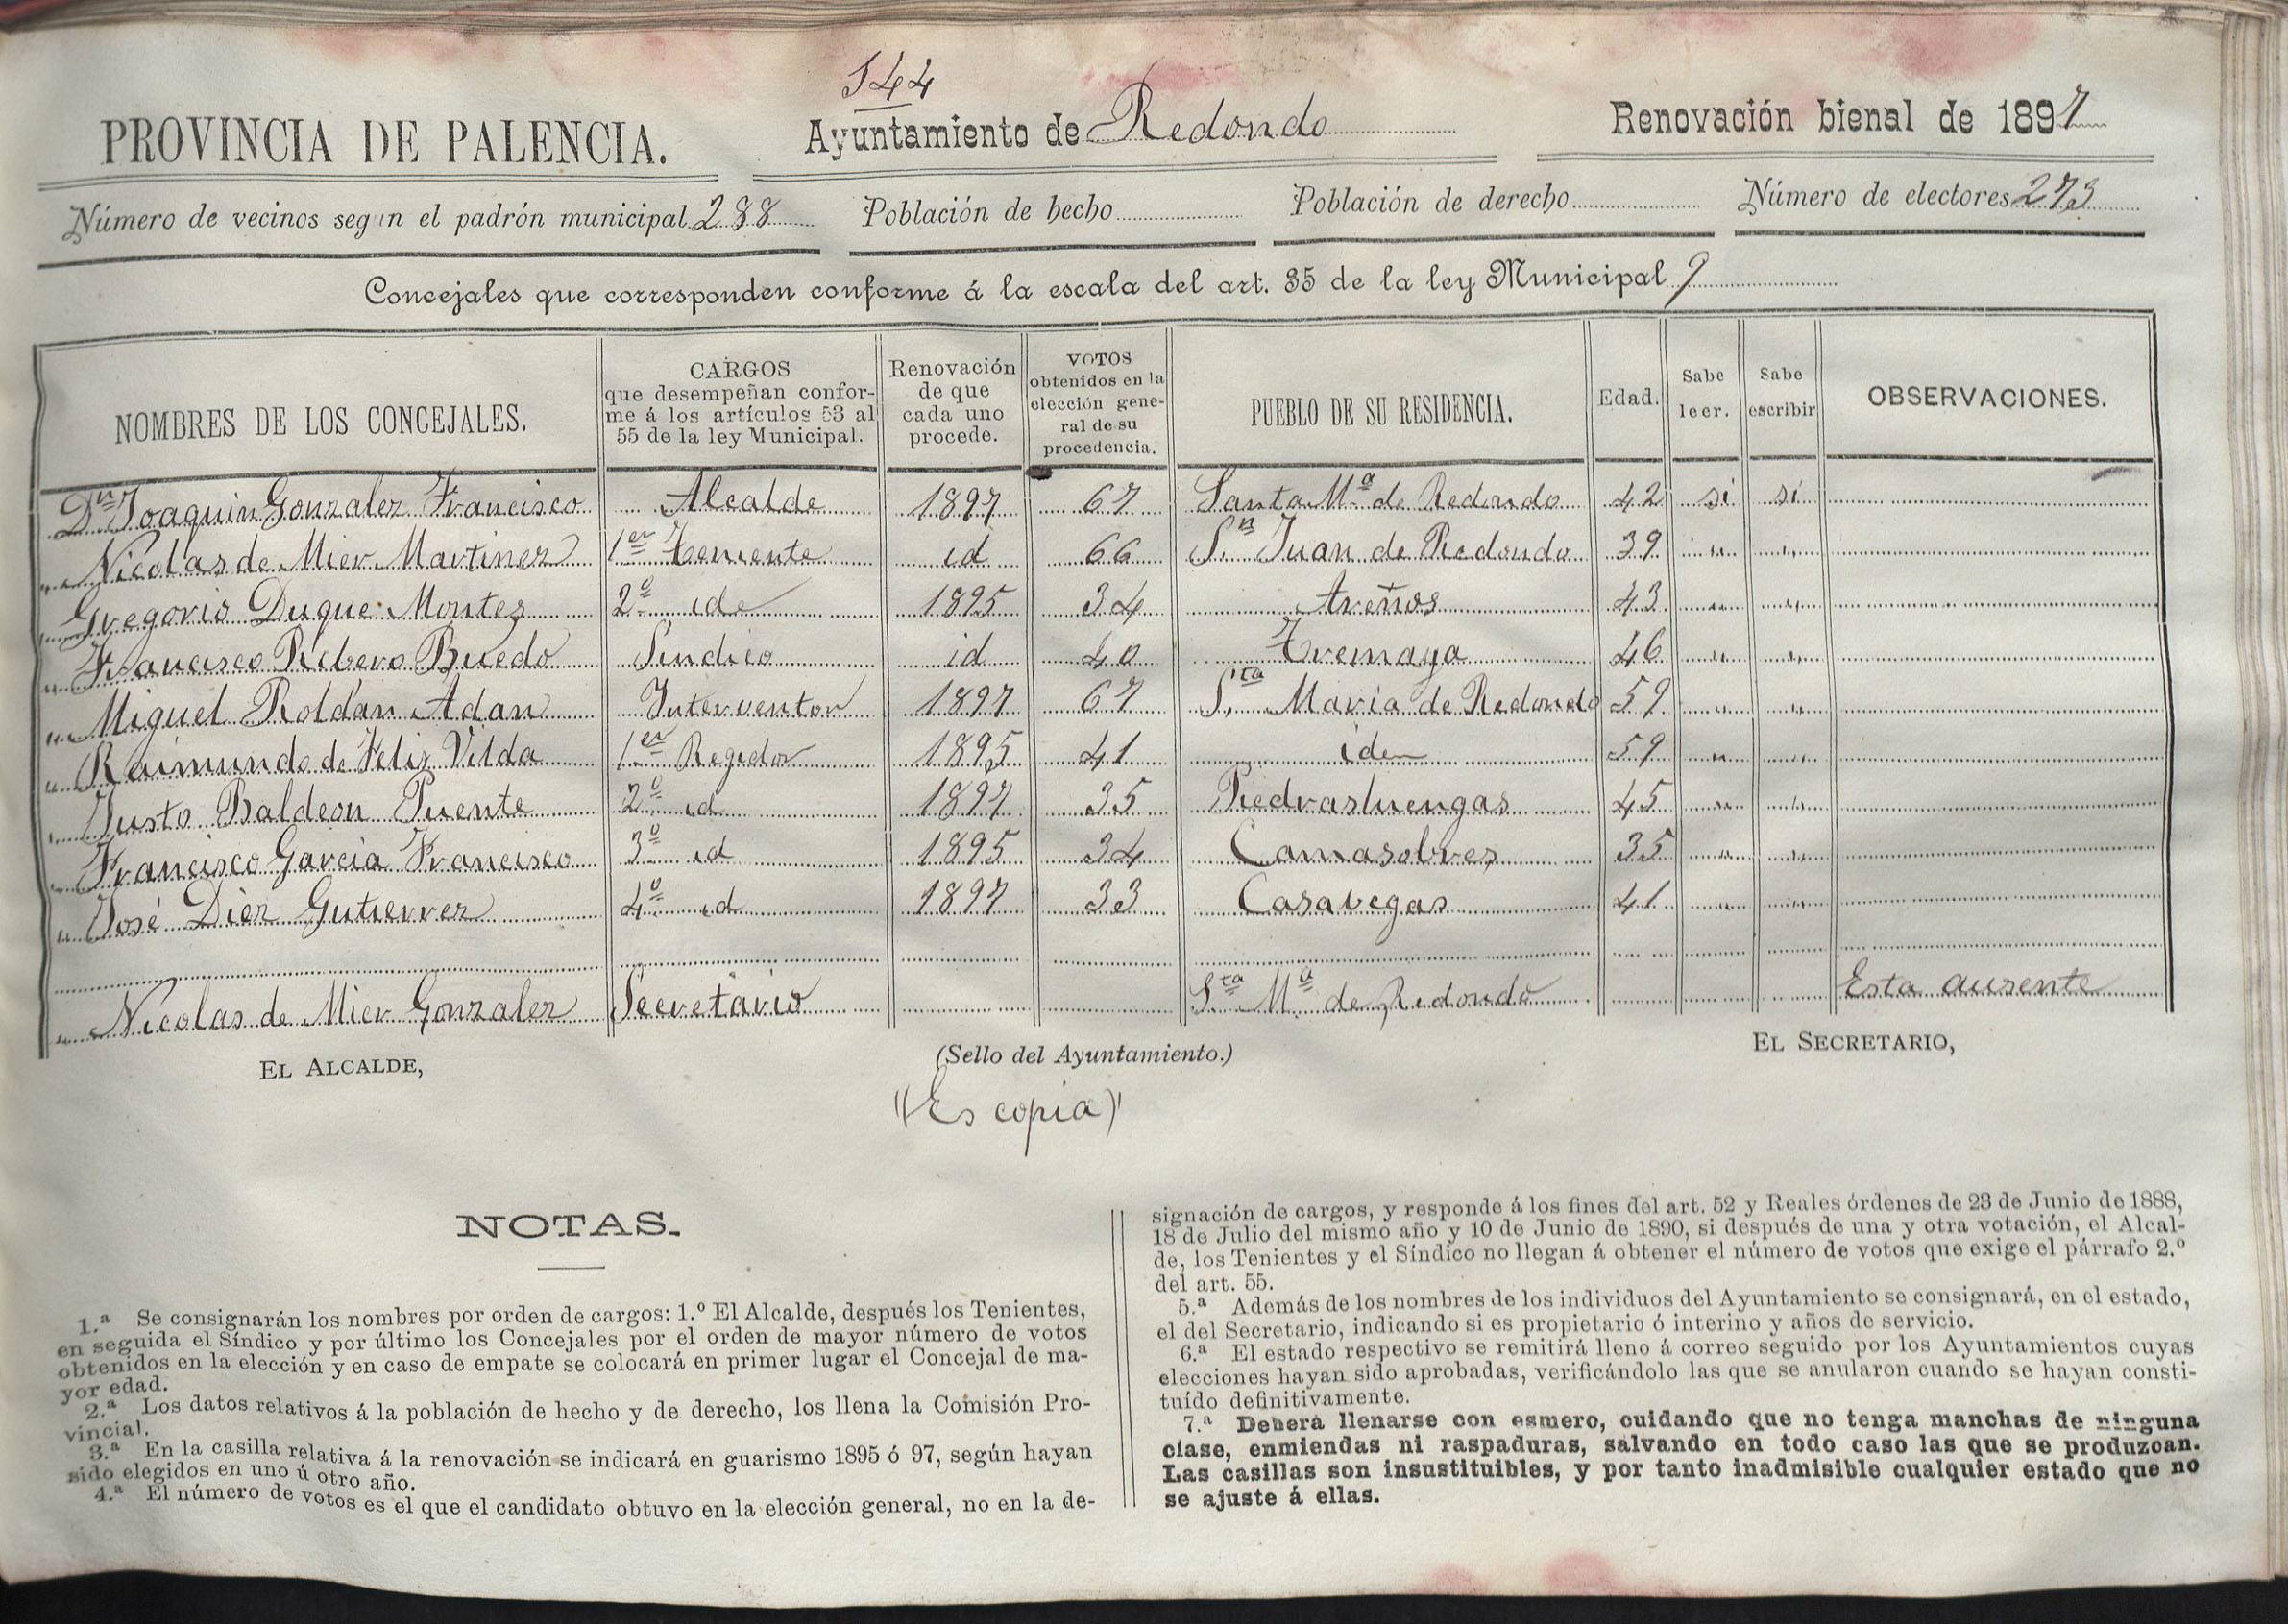 144
PROVINCIA DE PALENCIA. Ayuntamiento de Redondo Renovación bienal de 1897
Número de vecinos según el padrón municipal 288 Población de hecho Población de derecho Número de electores 273
Concejales que corresponden conforme á la escala del art. 35 de la ley Municipal 9
NOMBRES DE LOS CONCEJALES. CARGOS que desempeñan confor- Renovación de que cada uno procede. VOTOS obtenidos en la elección gene- PUEBLO DE SU RESIDENCIA. Edad. Sabe leer. Sabe escribir OBSERVACIONES.
me á los artículos 53 al ral de su
55 de la ley Municipal. procedencia.
Dn Joaquin Gonzalez Francisco Alcalde 1897 67 Santa Mª de Redondo 42 si si
" Nicolas de Mier Martinez 1er Teniente id 66 Sn Juan de Redondo 39 " "
" Gregorio Duque Montes 2º ide 1895 34 Areños 43 " "
" Francisco Ribero Buedo Sindico id 40 Tremaya 46 " "
" Miguel Roldán Adan Interventor 1897 67 Sta Maria de Redondo 59 " "
" Raimundo de Feliz Vilda 1er Regidor 1895 41 iden 59 " "
" Justo Baldeon Puente 2º id 1897 35 Piedrasluengas 45 " "
" Francisco Garcia Francisco 3º id 1895 34 Camasobres 35 " "
" José Diez Gutierrez 4º id 1897 33 Casavegas 41 " "
" Nicolas de Mier Gonzalez Secretario Sta Mª de Redondo Esta ausente
EL ALCALDE, (Sello del Ayuntamiento.) EL SECRETARIO,
(Es copia)
NOTAS.
1.ª Se consignarán los nombres por orden de cargos: 1.º El Alcalde, después los Tenientes,
en seguida el Síndico y por último los Concejales por el orden de mayor número de votos
obtenidos en la elección y en caso de empate se colocará en primer lugar el Concejal de ma-
yor edad.
2.ª Los datos relativos á la población de hecho y de derecho, los llena la Comisión Pro-
vincial.
3.ª En la casilla relativa á la renovación se indicará en guarismo 1895 ó 97, según hayan
sido elegidos en uno ú otro año.
4.ª El número de votos es el que el candidato obtuvo en la elección general, no en la de-
signación de cargos, y responde á los fines del art. 52 y Reales órdenes de 23 de Junio de 1888,
18 de Julio del mismo año y 10 de Junio de 1890, si después de una y otra votación, el Alcal-
de, los Tenientes y el Síndico no llegan á obtener el número de votos que exige el párrafo 2.º
del art. 55.
5.ª Además de los nombres de los individuos del Ayuntamiento se consignará, en el estado,
el del Secretario, indicando si es propietario ó interino y años de servicio.
6.ª El estado respectivo se remitirá lleno á correo seguido por los Ayuntamientos cuyas
elecciones hayan sido aprobadas, verificándolo las que se anularon cuando se hayan consti-
tuído definitivamente.
7.ª Deberá llenarse con esmero, cuidando que no tenga manchas de ninguna
clase, enmiendas ni raspaduras, salvando en todo caso las que se produzcan.
Las casillas son insustituibles, y por tanto inadmisible cualquier estado que no
se ajuste á ellas.